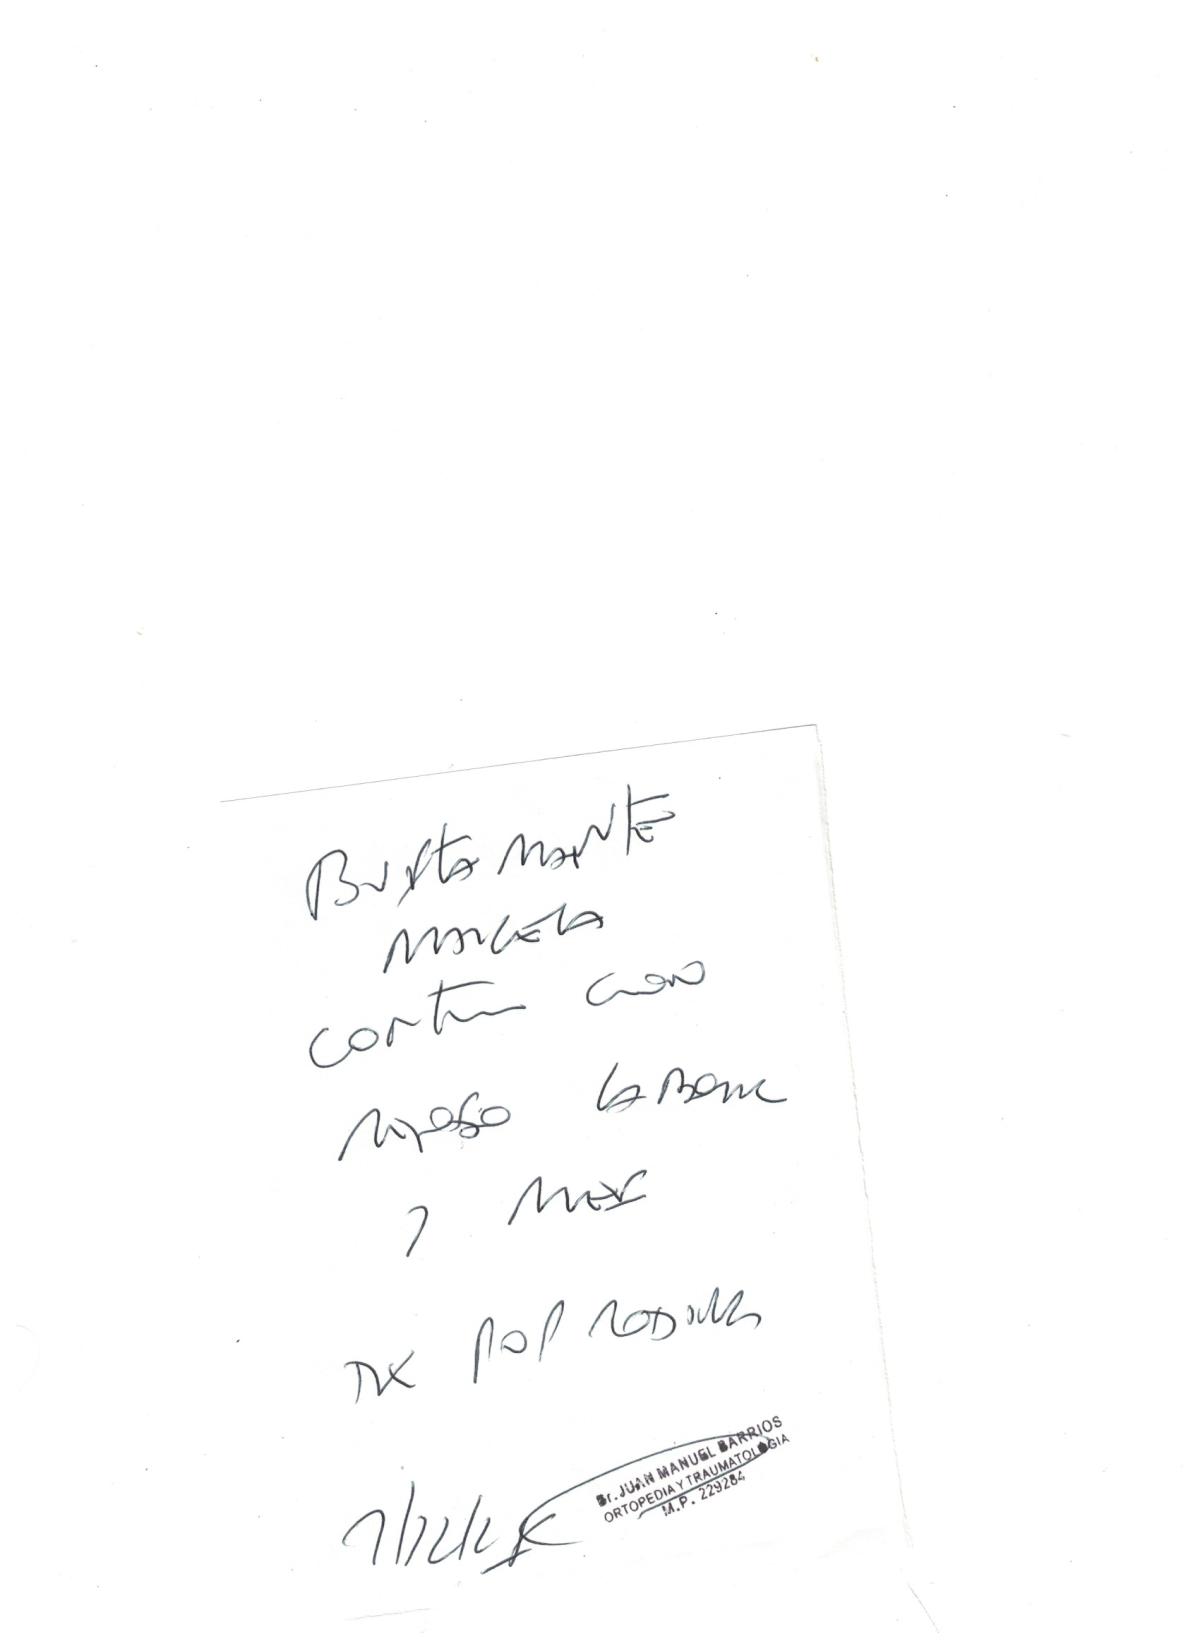 BUSTAMANTE
MARCELA
CONTINUA CON
REPOSO LABORAL
1 MES
DX POP RODILLA
Dr. JUAN MANUEL BARRIOS
ORTOPEDIA Y TRAUMATOLOGIA
M.P. 229284